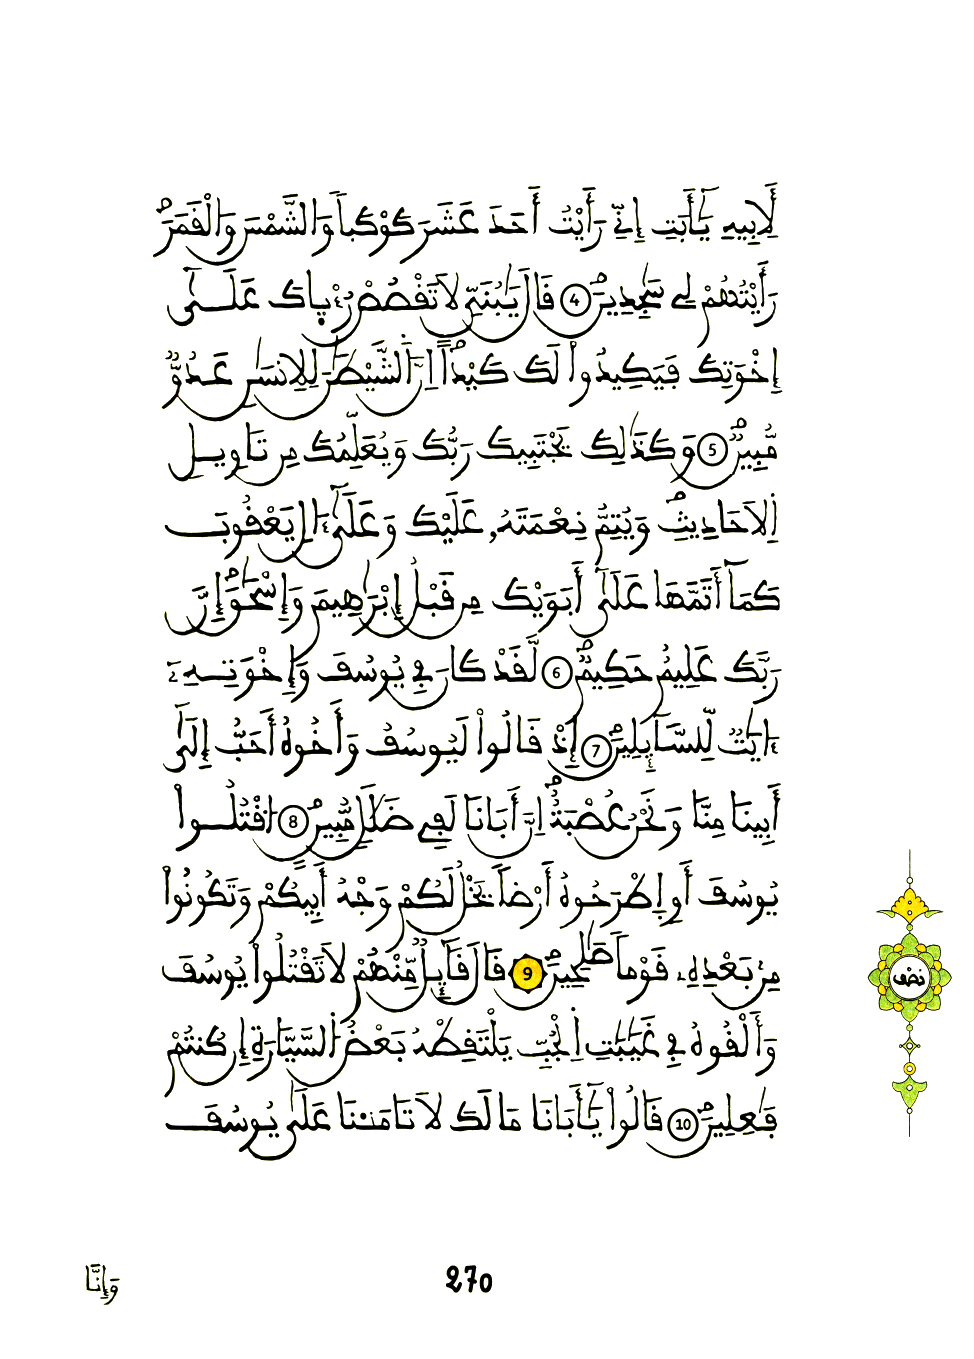 لِأَبِيهِ يَٰٓأَبَتِ إِنِّے رَأَيْتُ أَحَدَ عَشَرَ كَوْكَباٗ وَالشَّمْسَ وَالْقَمَرَ
رَأَيْتُهُمْ لِے سَٰجِدِينَۖ 4 قَالَ يَٰبُنَيِّ لَا تَقْصُصْ رُءْي۪اكَ عَلَىٰٓ
إِخْوَتِكَ فَيَكِيدُواْ لَكَ كَيْداًۖ اِنَّ اَلشَّيْطَٰنَ لِلِانسَٰنِ عَدُوّٞ
مُّبِينٞۖ 5 وَكَذَٰلِكَ يَجْتَبِيكَ رَبُّكَ وَيُعَلِّمُكَ مِن تَاوِيلِ
اِلَاحَادِيثِۖ وَيُتِمُّ نِعْمَتَهُۥ عَلَيْكَ وَعَلَىٰٓ ءَالِ يَعْقُوبَ
كَمَآ أَتَمَّهَا عَلَىٰٓ أَبَوَيْكَ مِن قَبْلُ إِبْرَٰهِيمَ وَإِسْحَٰقَۖ إِنَّ
رَبَّكَ عَلِيمٌ حَكِيمٞۖ 6 لَّقَدْ كَانَ فِے يُوسُفَ وَإِخْوَتِهِۦٓ
ءَايَٰتٞ لِّلسَّآئِلِينَۖ 7 إِذْ قَالُواْ لَيُوسُفُ وَأَخُوهُ أَحَبُّ إِلَىٰٓ
أَبِينَا مِنَّا وَنَحْنُ عُصْبَةٌۖ اِنَّ أَبَانَا لَفِے ضَلَٰلٖ مُّبِينٍۖ 8 اُقْتُلُواْ
يُوسُفَ أَوِ اِطْرَحُوهُ أَرْضاٗ يَخْلُ لَكُمْ وَجْهُ أَبِيكُمْ وَتَكُونُواْ
مِنۢ بَعْدِهِۦ قَوْماٗ صَٰلِحِينَۖ 9 قَالَ قَآئِلٞ مِّنْهُمْ لَا تَقْتُلُواْ يُوسُفَ
وَأَلْقُوهُ فِے غَيَٰبَٰتِ اِلْجُبِّ يَلْتَقِطْهُ بَعْضُ اُلسَّيَّارَةِ إِن كُنتُمْ
فَٰعِلِينَۖ 10 قَالُواْ يَٰٓأَبَانَا مَا لَكَ لَا تَامَ۬نَّا عَلَىٰ يُوسُفَ
نصف
270
وَإِنَّا